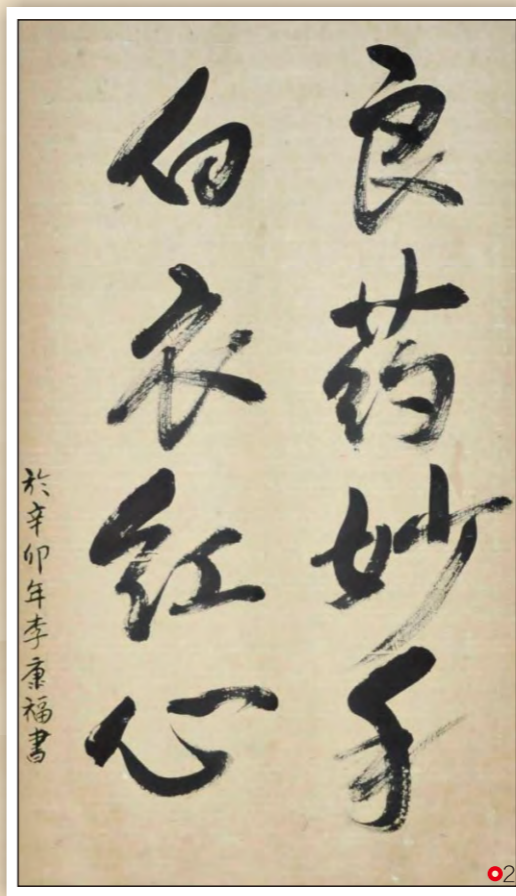 良药妙手
白衣红心
於辛卯年李康福書
2